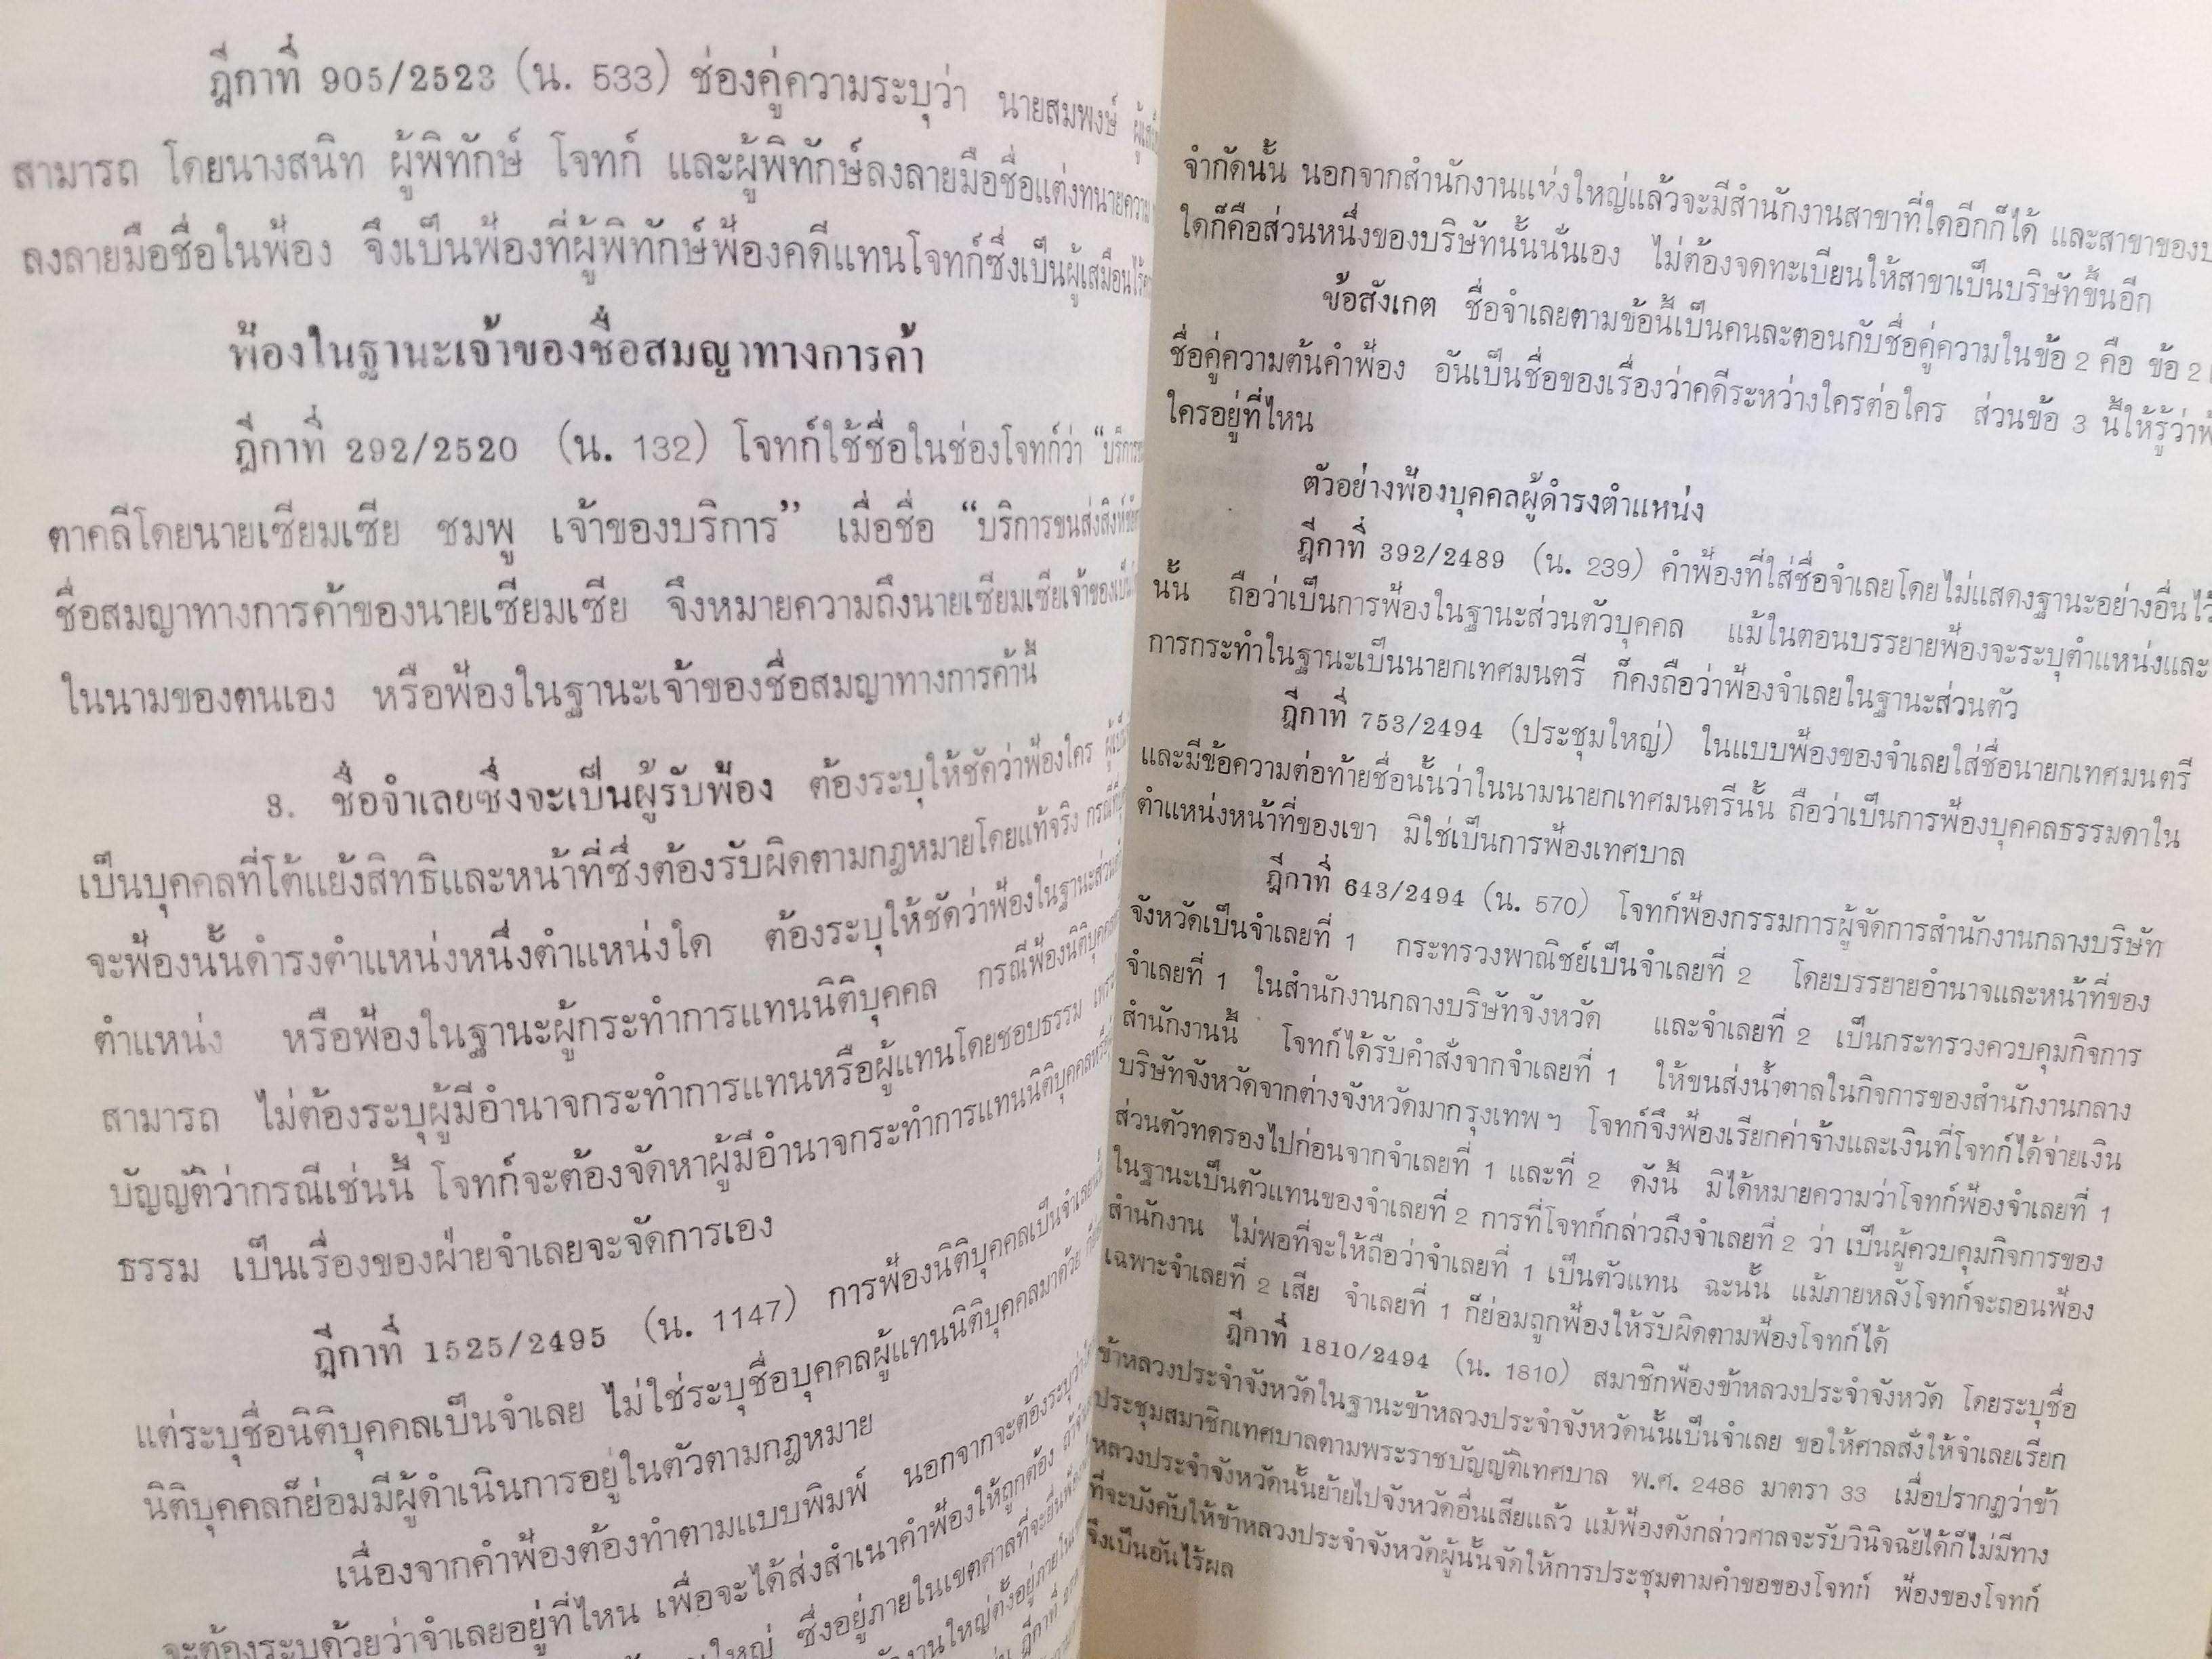 ฎีกาที่ 905/2523 (น. 533) ช่องคู่ความระบุว่า นายสมพงษ์
สามารถ โดยนางสนิท ผู้พิทักษ์ โจทก์ และผู้พิทักษ์ลงลายมือชื่อแต่งทนายความ
ลงลายมือชื่อในฟ้อง จึงเป็นฟ้องที่ผู้พิทักษ์ฟ้องคดีแทนโจทก์ซึ่งเป็นผู้เสมือนไร้
ฟ้องในฐานะเจ้าของชื่อสมญาทางการค้า
ฎีกาที่ 292/2520 (น. 132) โจทก์ใช้ชื่อในช่องโจทก์ว่า “บริการ
ตาคลีโดยนายเซียมเซีย ชมพู เจ้าของบริการ” เมื่อชื่อ “บริการขนส่งสิงห์
ชื่อสมญาทางการค้าของนายเซียมเซีย จึงหมายความถึงนายเซียมเซียเจ้าของ
ในนามของตนเอง หรือฟ้องในฐานะเจ้าของชื่อสมญาทางการค้านี้
3. ชื่อจำเลยซึ่งจะเป็นผู้รับฟ้อง ต้องระบุให้ชัดว่าฟ้องใคร
เป็นบุคคลที่โต้แย้งสิทธิและหน้าที่ซึ่งต้องรับผิดตามกฎหมายโดยแท้จริง
จะฟ้องนั้นดำรงตำแหน่งหนึ่งตำแหน่งใด ต้องระบุให้ชัดว่าฟ้องในฐานะส่วนตัว
ตำแหน่ง หรือฟ้องในฐานะผู้กระทำการแทนนิติบุคคล กรณีฟ้องนิติบุคคล
สามารถ ไม่ต้องระบุผู้มีอำนาจกระทำการแทนหรือผู้แทนโดยชอบธรรม
บัญญัติว่ากรณีเช่นนี้ โจทก์จะต้องจัดหาผู้มีอำนาจกระทำการแทนนิติบุคคล
ธรรม เป็นเรื่องของฝ่ายจำเลยจะจัดการเอง
ฎีกาที่ 1525/2495 (น. 1147) การฟ้องนิติบุคคลเป็นจำเลย
แต่ระบุชื่อนิติบุคคลเป็นจำเลย ไม่ใช่ระบุชื่อบุคคลผู้แทนนิติบุคคลมาด้วย
นิติบุคคลก็ย่อมมีผู้ดำเนินการอยู่ในตัวตามกฎหมาย
เนื่องจากคำฟ้องต้องทำตามแบบพิมพ์ นอกจากจะต้องระบุว่า
จะต้องระบุด้วยว่าจำเลยอยู่ที่ไหน เพื่อจะได้ส่งสำเนาคำฟ้องให้ถูกต้อง
ซึ่งอยู่ภายในเขตศาลที่จะยื่นฟ้อง
งานใหญ่ตั้งอยู่ภายใน
ฎีกาที่
จำกัดนั้น นอกจากสำนักงานแห่งใหญ่แล้วจะมีสำนักงานสาขาที่ใดอีกก็ได้ และสาขาของ
ใดก็คือส่วนหนึ่งของบริษัทนั้นนั่นเอง ไม่ต้องจดทะเบียนให้สาขาเป็นบริษัทขึ้นอีก
ข้อสังเกต ชื่อจำเลยตามข้อนี้เป็นคนละตอนกับชื่อคู่ความในข้อ 2 คือ ข้อ 2
ชื่อคู่ความต้นคำฟ้อง อันเป็นชื่อของเรื่องว่าคดีระหว่างใครต่อใคร ส่วนข้อ 3 นี้ให้รู้ว่า
ใครอยู่ที่ไหน
ตัวอย่างฟ้องบุคคลผู้ดำรงตำแหน่ง
ฎีกาที่ 392/2489 (น. 239) คำฟ้องที่ใส่ชื่อจำเลยโดยไม่แสดงฐานะอย่างอื่นไว้
นั้น ถือว่าเป็นการฟ้องในฐานะส่วนตัวบุคคล แม้ในตอนบรรยายฟ้องจะระบุตำแหน่งและ
การกระทำในฐานะเป็นนายกเทศมนตรี ก็คงถือว่าฟ้องจำเลยในฐานะส่วนตัว
ฎีกาที่ 753/2494 (ประชุมใหญ่) ในแบบฟ้องของจำเลยใส่ชื่อนายกเทศมนตรี
และมีข้อความต่อท้ายชื่อนั้นว่าในนามนายกเทศมนตรีนั้น ถือว่าเป็นการฟ้องบุคคลธรรมดาใน
ตำแหน่งหน้าที่ของเขา มิใช่เป็นการฟ้องเทศบาล
ฎีกาที่ 643/2494 (น. 570) โจทก์ฟ้องกรรมการผู้จัดการสำนักงานกลางบริษัท
จังหวัดเป็นจำเลยที่ 1 กระทรวงพาณิชย์เป็นจำเลยที่ 2 โดยบรรยายอำนาจและหน้าที่ของ
จำเลยที่ 1 ในสำนักงานกลางบริษัทจังหวัด และจำเลยที่ 2 เป็นกระทรวงควบคุมกิจการ
สำนักงานนี้ โจทก์ได้รับคำสั่งจากจำเลยที่ 1 ให้ขนส่งน้ำตาลในกิจการของสำนักงานกลาง
บริษัทจังหวัดจากต่างจังหวัดมากรุงเทพฯ โจทก์จึงฟ้องเรียกค่าจ้างและเงินที่โจทก์ได้จ่ายเงิน
ส่วนตัวทดรองไปก่อนจากจำเลยที่ 1 และที่ 2 ดังนี้ มิได้หมายความว่าโจทก์ฟ้องจำเลยที่ 1
ในฐานะเป็นตัวแทนของจำเลยที่ 2 การที่โจทก์กล่าวถึงจำเลยที่ 2 ว่า เป็นผู้ควบคุมกิจการของ
สำนักงาน ไม่พอที่จะให้ถือว่าจำเลยที่ 1 เป็นตัวแทน ฉะนั้น แม้ภายหลังโจทก์จะถอนฟ้อง
เฉพาะจำเลยที่ 2 เสีย จำเลยที่ 1 ก็ย่อมถูกฟ้องให้รับผิดตามฟ้องโจทก์ได้
ฎีกาที่ 1810/2494 (น. 1810) สมาชิกฟ้องข้าหลวงประจำจังหวัด โดยระบุชื่อ
ข้าหลวงประจำจังหวัดในฐานะข้าหลวงประจำจังหวัดนั้นเป็นจำเลย ขอให้ศาลสั่งให้จำเลยเรียก
ประชุมสมาชิกเทศบาลตามพระราชบัญญัติเทศบาล พ.ศ. 2486 มาตรา 33 เมื่อปรากฏว่าข้า
หลวงประจำจังหวัดนั้นย้ายไปจังหวัดอื่นเสียแล้ว แม้ฟ้องดังกล่าวศาลจะรับวินิจฉัยได้ก็ไม่มีทาง
ที่จะบังคับให้ข้าหลวงประจำจังหวัดผู้นั้นจัดให้การประชุมตามคำขอของโจทก์ ฟ้องของโจทก์
จึงเป็นอันไร้ผล